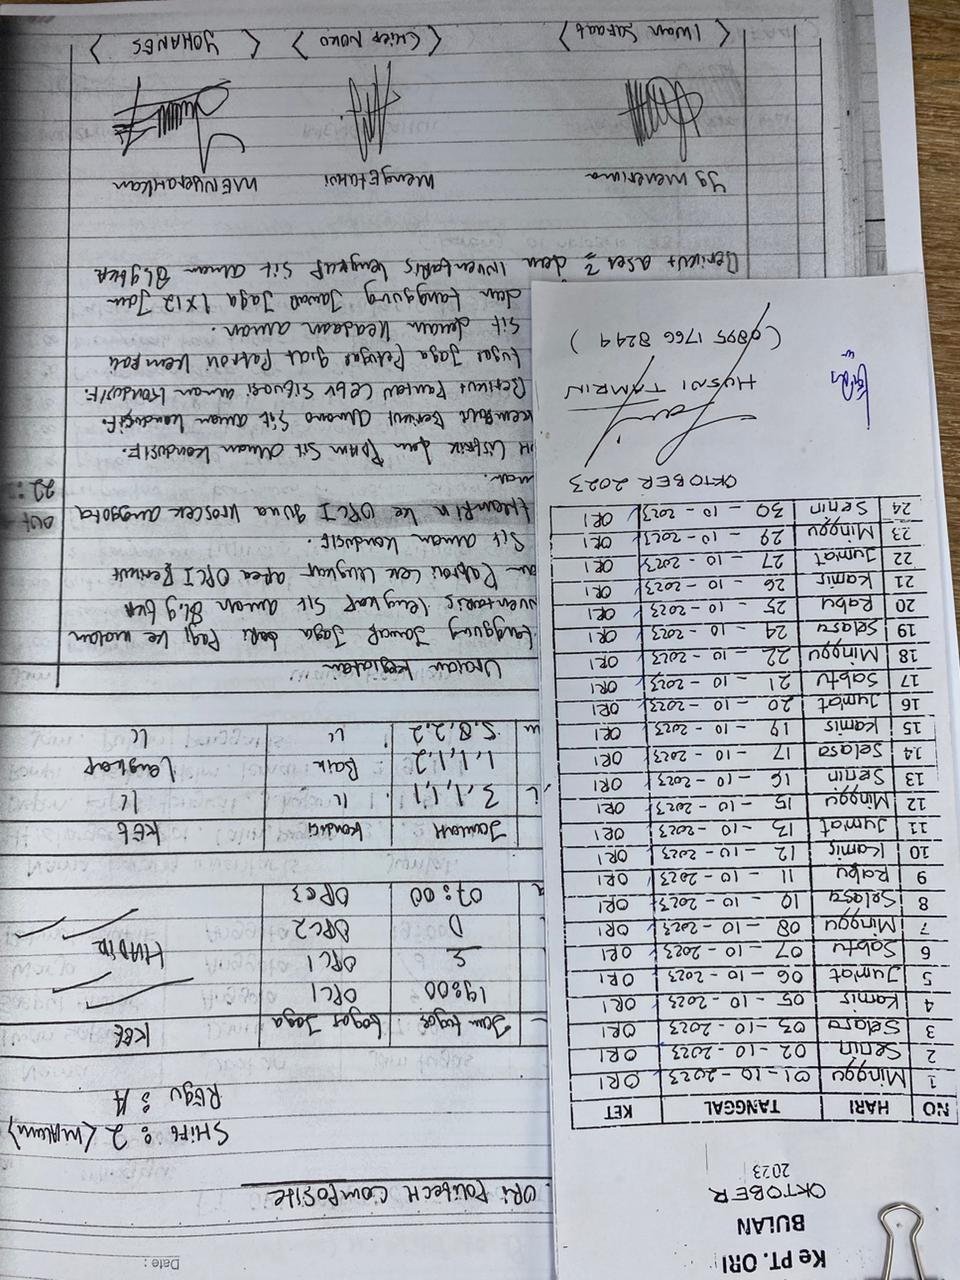 Ke PT. ORI
BULAN
OKTOBER
2023
NO HARI TANGGAL KET
1 Minggu 01-10-2023 ORI
2 Senin 02-10-2023 ORI
3 Selasa 03-10-2023 ORI
4 Kamis 05-10-2023 ORI
5 Jumat 06-10-2023 ORI
6 Sabtu 07-10-2023 ORI
7 Minggu 08-10-2023 ORI
8 Selasa 10-10-2023 ORI
9 Rabu 11-10-2023 ORI
10 Kamis 12-10-2023 ORI
11 Jumat 13-10-2023 ORI
12 Minggu 15-10-2023 ORI
13 Senin 16-10-2023 ORI
14 Selasa 17-10-2023 ORI
15 Kamis 19-10-2023 ORI
16 Jumat 20-10-2023 ORI
17 Sabtu 21-10-2023 ORI
18 Minggu 22-10-2023 ORI
19 Selasa 24-10-2023 ORI
20 Rabu 25-10-2023 ORI
21 Kamis 26-10-2023 ORI
22 Jumat 27-10-2023 ORI
23 Minggu 29-10-2023 ORI
24 Senin 30-10-2023 ORI
OKTOBER 2023
HUSNI TAMRIN
(0895 1766 8244)
Date :
ORI POLITECH COMPOSITE
SHIFT : 2 (MALAM)
REGU : A
Jam tugas tugas Jaga KET
19:00 ORC 1
S ORC 1 HADIR
D ORC 2
07:00 ORC 3
Jumlah kondisi KET
3,1,1,1 " "
1,1,1,2 Baik Lengkap
5,8,2,2 " "
Uraian kegiatan
tanggung Jawab Jaga dari Pagi ke malam
ventaris lengkap Sit aman
Patroli cek lengkap area ORC I Berikut
Sit aman kondusif.
ke ORC I guna kroscek anggota
out
22:
man.
Listrik dan Sit aman kondusif.
Berikut Sit aman kondusif.
Berikut Pantau Situasi aman kondusif.
tugas Jaga giat Patroli kembali
Sit dengan keadaan aman.
dan tanggung Jawab Jaga 1x12 Jam
Berikut Aset² dan inventaris lengkap Sit aman
Yg Menerima Mengetahui MENYERAHKAN
(CHIEF NOKO) (YOHANES)